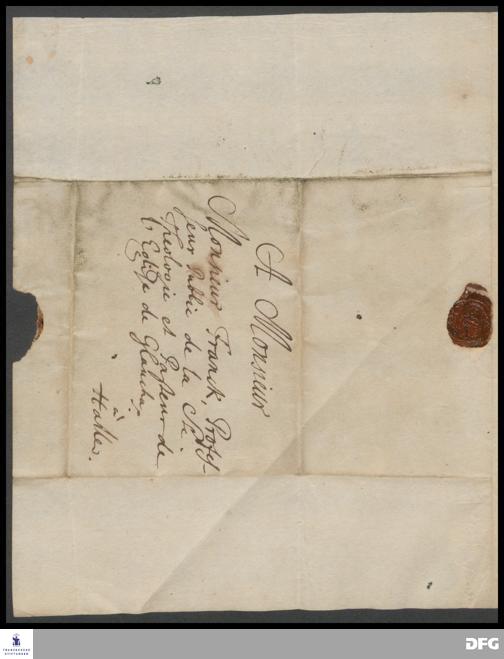 A Monsieur
Monsieur Franck, Profes-
seur Public de la
Theologie et Pasteur de
l'Eglise de Glaucha,
à
Halle.
FRANCKESCHE
STIFTUNGEN
DFG